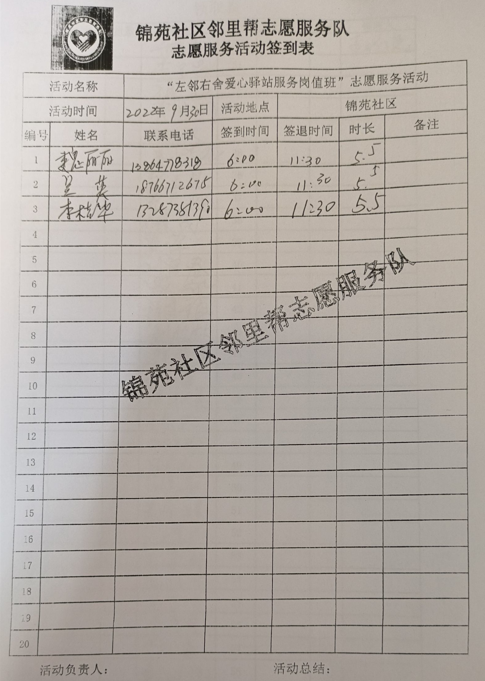 锦苑社区邻里帮志愿服务队
志愿服务活动签到表
活动名称 “左邻右舍爱心驿站服务岗值班”志愿服务活动
活动时间 2022年9月30日 活动地点 锦苑社区
编号 姓名 联系电话 签到时间 签退时间 时长 备注
1 丽丽 6:00 11:30 5.5
2 18766712675 6:00 11:30 5.5
3 李 6:00 11:30 5.5
4
5
6
7
锦苑社区邻里帮志愿服务队
8
9
10
11
12
13
14
15
16
17
18
19
20
活动负责人: 活动总结: